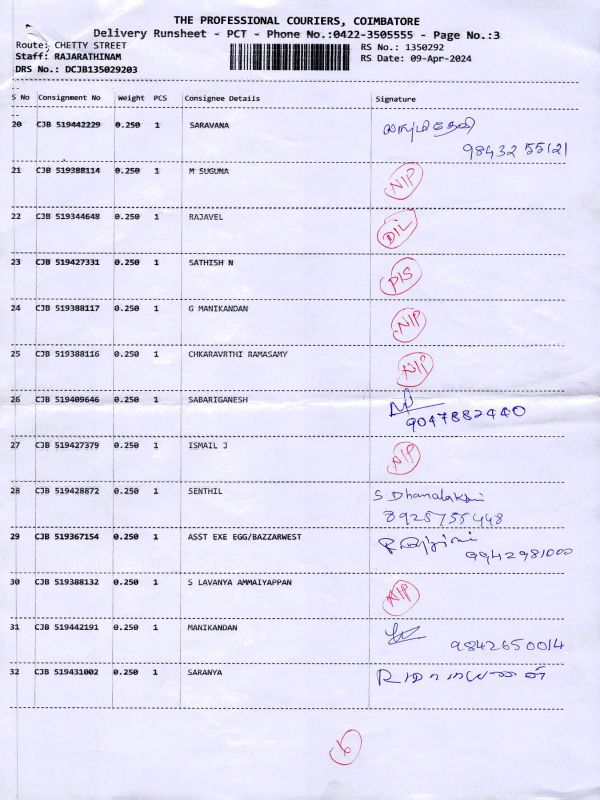 THE PROFESSIONAL COURIERS, COIMBATORE
Delivery Runsheet - PCT - Phone No.:0422-3505555 - Page No.:3
Route: CHETTY STREET RS No.: 1350292
Staff: RAJARATHINAM RS Date: 09-Apr-2024
DRS No.: DCJB135029203
S No Consignment No Weight PCS Consignee Details Signature
20 CJB 519442229 0.250 1 SARAVANA
98432 55121
21 CJB 519388114 0.250 1 M SUGUMA NIP
22 CJB 519344648 0.250 1 RAJAVEL DIL
23 CJB 519427331 0.250 1 SATHISH N PIS
24 CJB 519388117 0.250 1 G MANIKANDAN NIP
25 CJB 519388116 0.250 1 CHKARAVRTHI RAMASAMY NIP
26 CJB 519409646 0.250 1 SABARIGANESH
9047882440
27 CJB 519427379 0.250 1 ISMAIL J NIP
28 CJB 519428872 0.250 1 SENTHIL S. Dhanalakshmi
8925755448
29 CJB 519367154 0.250 1 ASST EXE EGG/BAZZARWEST
9942981000
30 CJB 519388132 0.250 1 S LAVANYA AMMAIYAPPAN NIP
31 CJB 519442191 0.250 1 MANIKANDAN
9842650014
32 CJB 519431002 0.250 1 SARANYA
6